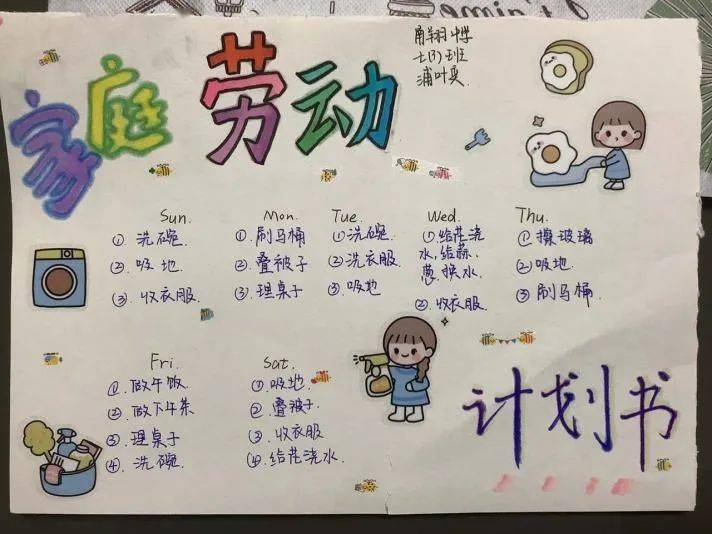 家庭劳动
甪端中学
七(3)班
浦叶奕
Sun.
① 洗碗.
② 吸地.
③ 收衣服.
Mon.
① 刷马桶
② 叠被子
③ 理桌子
Tue.
① 洗碗.
② 洗衣服.
③ 吸地
Wed.
① 给花浇
水,给蒜、
葱换水.
② 收衣服.
Thu.
① 擦玻璃
② 吸地.
③ 刷马桶.
Fri
① 做午饭
② 做下午茶
③ 理桌子
④ 洗碗.
Sat.
① 吸地.
② 叠被子.
③ 收衣服
④ 给花浇水.
计划书